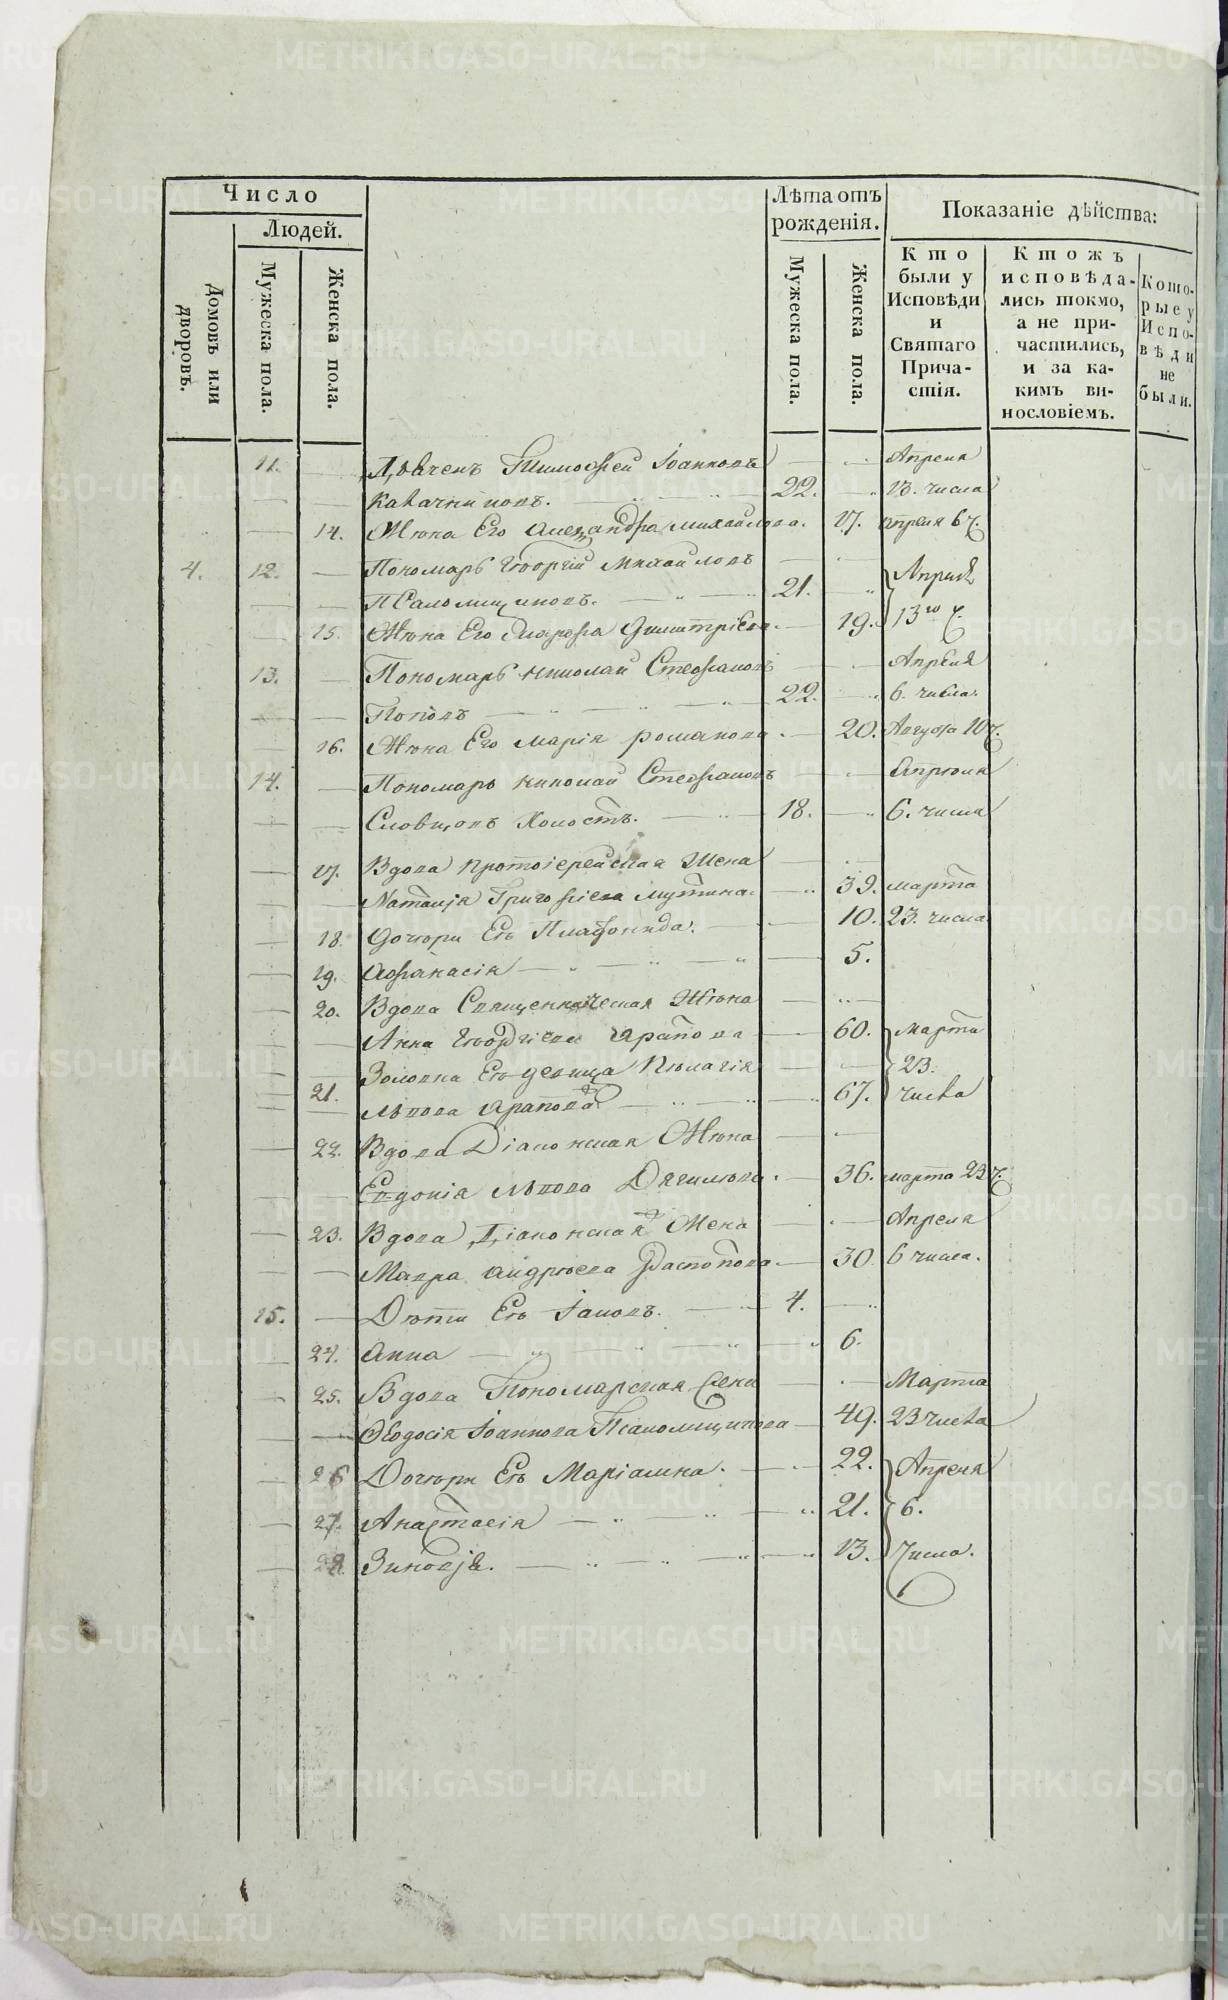 Число
Людей.
Домовъ или дворовъ.
Мужеска пола.
Женска пола.
Лѣта отъ рожденія.
Мужеска пола.
Женска пола.
Показаніе дѣйства:
Кто были у Исповѣди и Святаго Причастія.
Ктожъ исповѣдались токмо, а не причастились, и за какимъ винословіемъ.
Которые у Исповѣди не были.
11. Дьячекъ Тимофей Іоанновъ Апреля
22. 13. числа
14. Жена Его Александра Михайлова. 17. апреля 6 ч.
4. 12. Пономарь Георгій Михайловъ Апреля
Псаломщиковъ. 21. 13го ч.
15. Жена Его Марфа Димитріева 19.
13. Пономарь Николай Стефановъ Апреля
Поповъ 22. 6. числа.
16. Жена Его Марія Романова. 20. Августа 10 ч.
14. Пономарь Николай Стефановъ Апреля
Словцовъ Холостъ. 18. 6. числа
17. Вдова Протоіерейская Жена
Наталія Григорьева Мутина. 39. марта
18. Дочери Ея Платонида. 10. 23. числа
19. Афанасія 5.
20. Вдова Священническая Жена
Анна Георгіева Арапова 60. марта
Золовка Ея девица Пелагія 23.
21. Львова Арапова 67. числа
22. Вдова Діаконская Жена
Евдокія Львова Дягилева. 36. марта 23 ч.
23. Вдова Діаконская Жена Апреля
Мавра Андреева Распопова. 30 6 числа.
15. Дети Ея Іаковъ. 4.
24. Анна 6.
25. Вдова Пономарская Жена Марта
Феодосія Іоаннова Псаломщикова 49. 23 числа
26 Дочери Ея Маріамна. 22. Апреля
27. Анастасія 21. 6.
28. Зиновія. 13. Числа.
METRIKI.GASO-URAL.RU